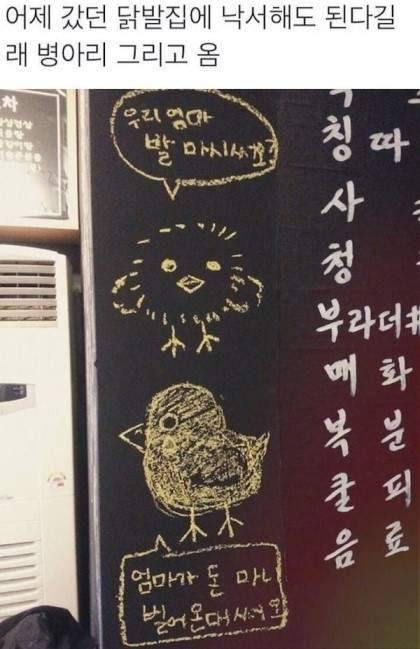 어제 갔던 닭발집에 낙서해도 된다길
래 병아리 그리고 옴
우리 엄마
발 마시써요?
엄마가 돈 마니
벌어온대써요
칭
사
청
부
매
복
쿨
음
따
라더#
화
분
피
료